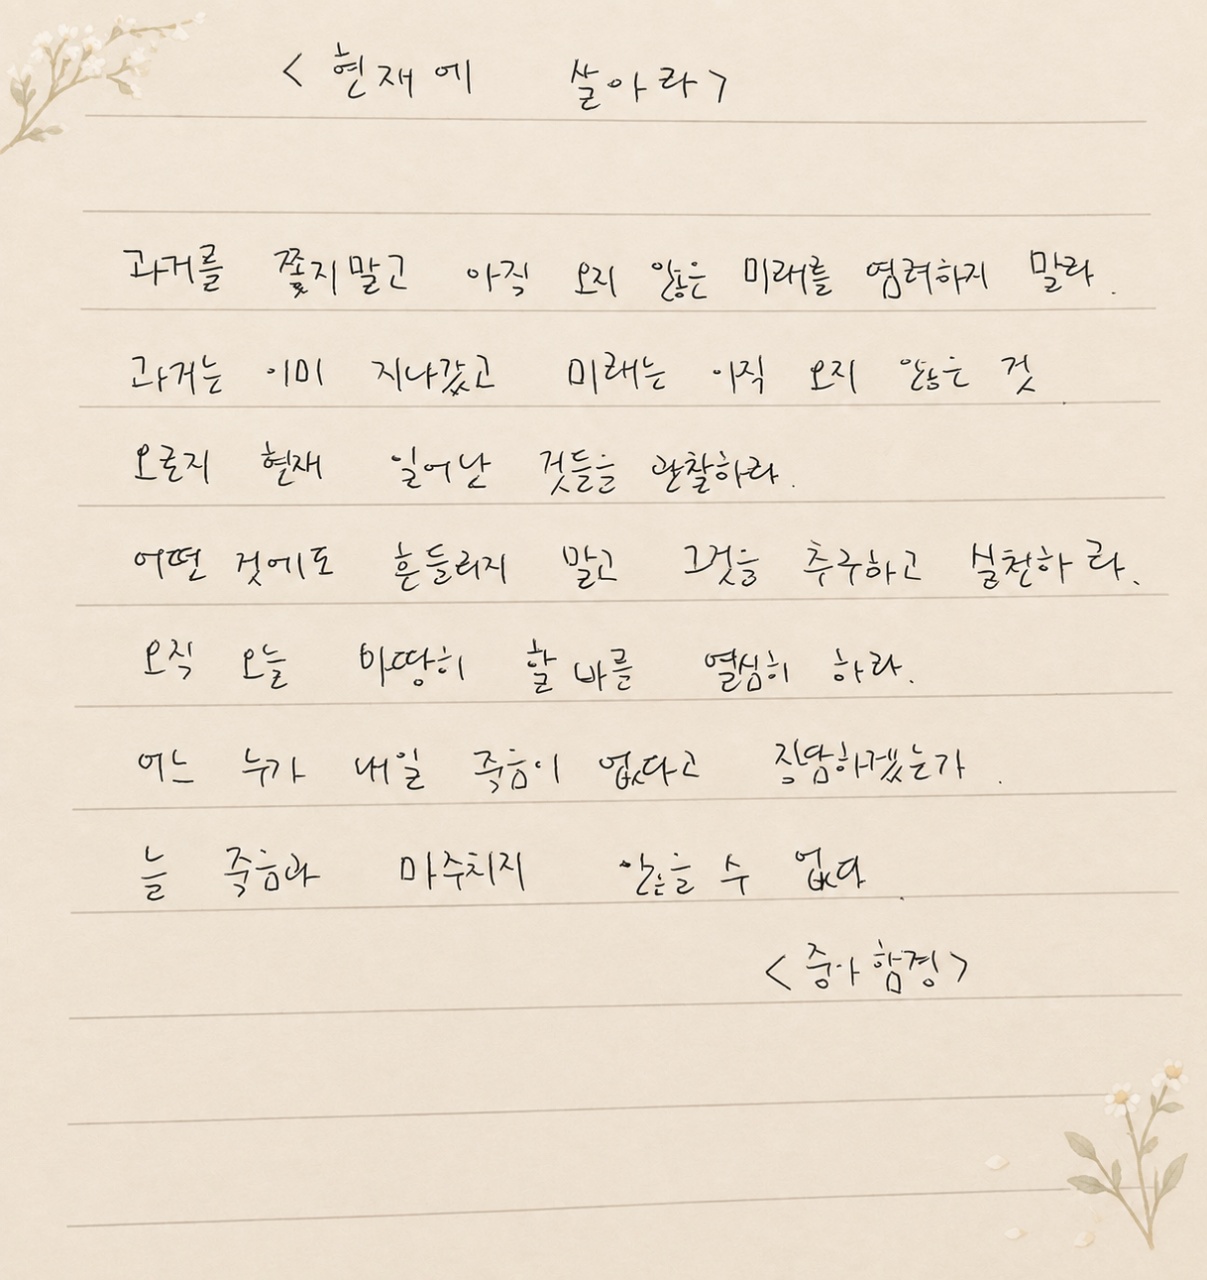 < 현재에 살아라 >
과거를 쫓지말고 아직 오지 않은 미래를 염려하지 말라.
과거는 이미 지나갔고 미래는 아직 오지 않은 것.
오로지 현재 일어난 것들을 관찰하라.
어떤 것에도 흔들리지 말고 그것을 추구하고 실천하라.
오직 오늘 마땅히 할 바를 열심히 하라.
어느 누가 내일 죽음이 없다고 장담하겠는가.
늘 죽음과 마주치지 않을 수 없다.
< 중아함경 >